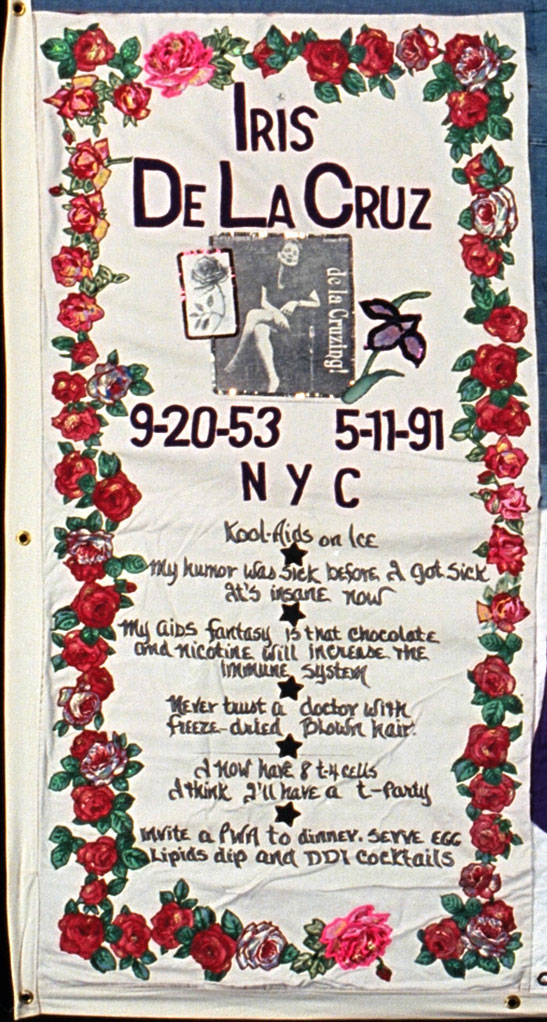 IRIS
DE LA CRUZ
de la Cruzing!
9-20-53 5-11-91
NYC
Kool-Aids on Ice
My humor was sick before I got sick
It's insane now
My AIDS fantasy is that chocolate
and nicotine will increase the
immune system
Never trust a doctor with
freeze-dried blown hair.
I now have 8 t-4 cells
I think I'll have a t-party
Invite a PWA to dinner. Serve EGG
Lipids dip and DDI cocktails